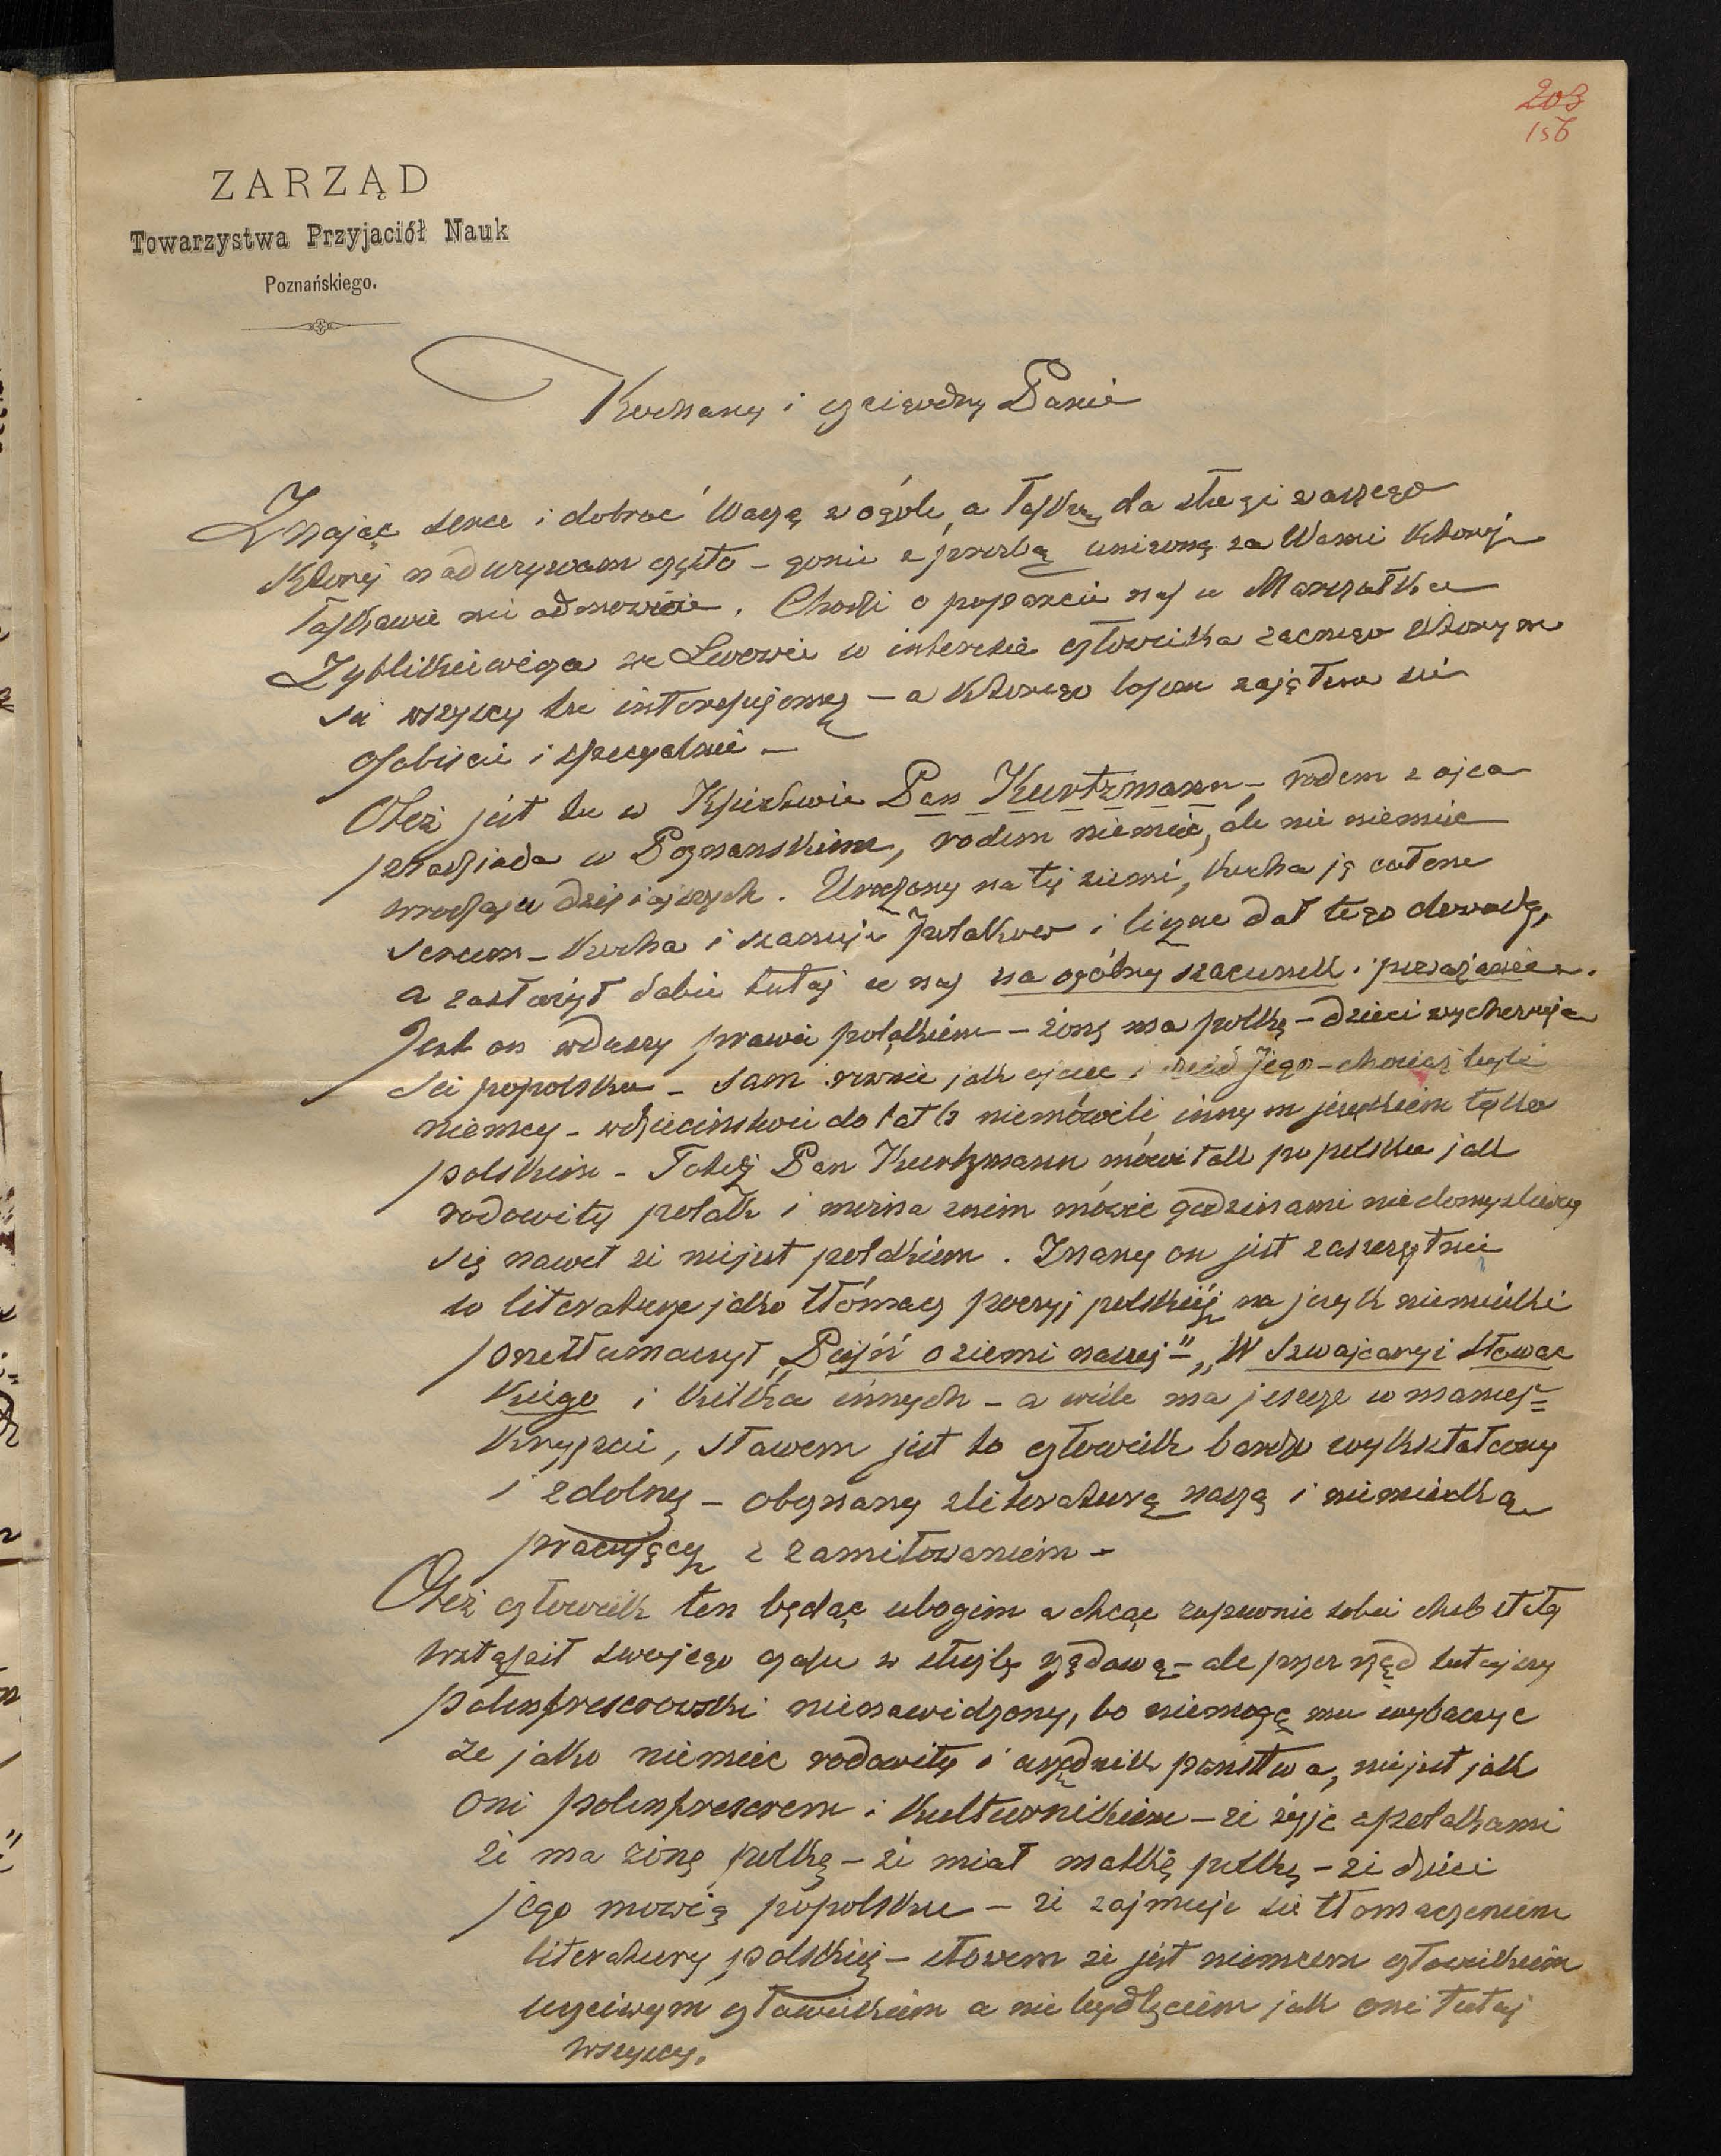 203
156
ZARZĄD
Towarzystwa Przyjaciół Nauk
Poznańskiego.
Kochany i czcigodny Panie
Znając serce i dobroć Waszą w ogóle, a łaskę dla sługi waszego
której nadużywam często – gonię z prośbą uniżoną za Wami której
łaskawie nie odmówicie. Chodzi o poparcie nas u Marszałka
Zyblikiewicza we Lwowie w interesie człowieka zacnego którym
się wszyscy tu interesujemy – a którego losem zająłem się
osobiście i specyalnie –
Otóż jest tu w Księstwie Pan Kurtzmann –, rodem z ojca
pradziada w Poznańskiem, rodem niemiec, ale nie niemiec
wrodzaju dzisiajszych. Urodzony na tej ziemi, kocha ją całem
sercem – kocha i szanuje polaków i liczne dał tego dowody,
a zasłużył sobie tutaj u nas na ogólny szacunek i poważanie.
Jest on wduszy prawie polakiem – żonę ma polkę – dzieci wychowuje
się popolsku – sam równie jak ojciec i dziad jego – chociaż byli
niemcy – wdzieciństwie do lat 12 niemówili innym językiem tylko
polskim – Toteż Pan Kurtzmann mówi tak po polsku jak
rodowity polak i można znim mówić godzinami niedomyślając
się nawet że niejest polakiem. Znany on jest zaszczytnie
w literaturze jako tłómacz poezyj polskiéj na język niemiecki
przetłumaczył „Pieśń o ziemi naszej" – „W Szwajcaryi Słowac
kiego i kilka innych – a wiele ma jeszcze w manus=
krypcie, słowem jest to człowiek bardzo wykształcony
i zdolny – obznany zliteraturą naszą i niemiecką
pracujący z zamiłowaniem –
Otóż człowiek ten będąc ubogim a chcąc zapewnić sobie chleb stały
wstąpił swojego czasu w służbę rządową – ale przez rząd tutejszy
polenfreserowski nienawidzony, bo niemogą mu wybaczyć
że jako niemiec rodowity i urzędnik państwa, niejest jak
oni polenfreserem i kulturnikiem – że żyje zpolakami
że ma żonę polkę – że miał matkę polkę – że dzieci
jego mówią popolsku – że zajmuje się tłomaczeniem
literatury polskiej – słowem że jest niemcem człowiekiem
uczciwym człowiekiem a nie bydlęciem jak oni tutaj
wszyscy.